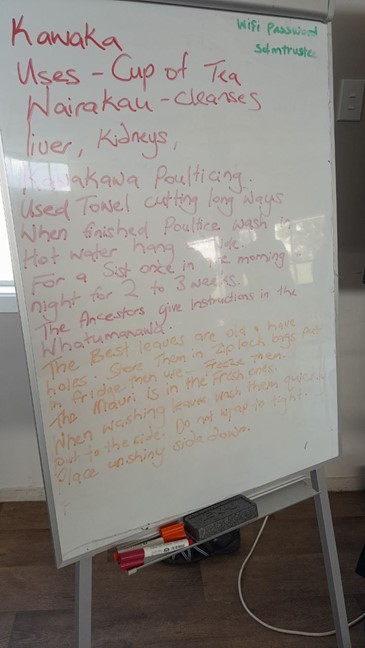 Wifi Password
Kawaka
Uses - Cup of Tea
Wairakau - cleanses
liver, Kidneys,
Kawakawa Poulticing.
Used Towel cutting long ways
When finished Poultice wash in
Hot water hang
For a Sist once in the morning
night for 2 to 3 weeks.
The Ancestors give instructions in the
Whatumanawa.
The Best leaves are old & have
holes. Store Them in Ziplock bags Put
in fridge then use Freeze Them.
The Mauri is in the Fresh ones.
When washing leaves wash them quickly
out to the side. Do not wrap to tight.
Place unshiny side down.